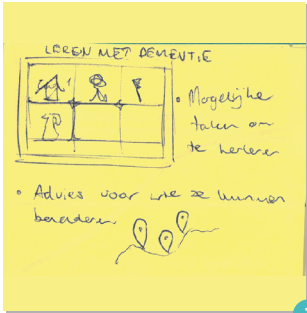 LEREN MET DEMENTIE
• Mogelijke
taken om
te herleren
• Advies voor wie ze kunnen
benaderen